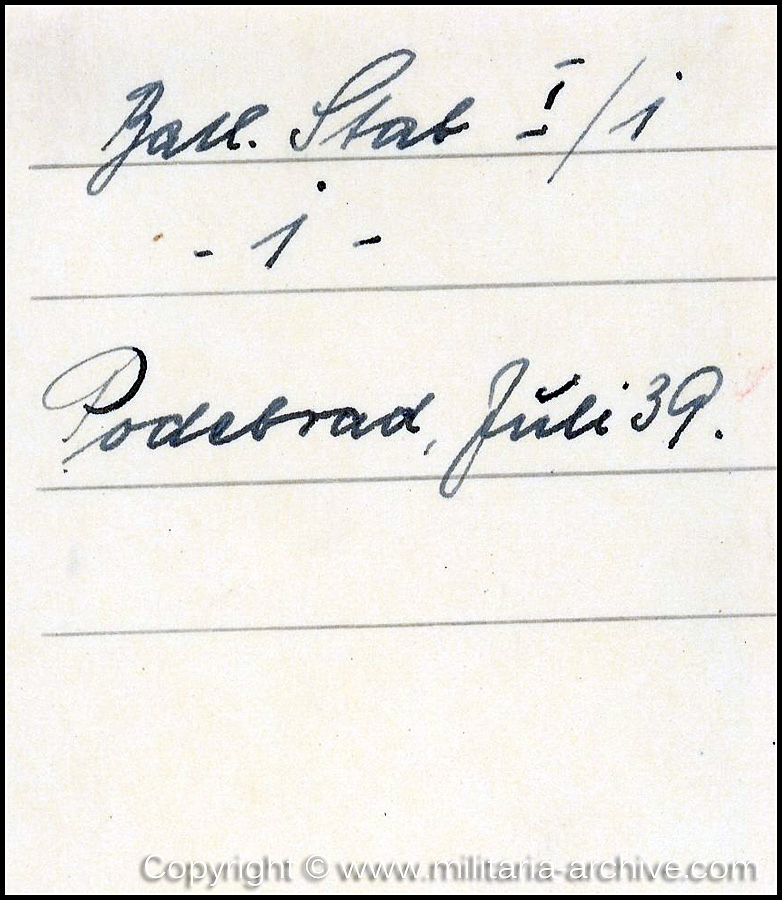 Batl. Stab I/i
- i -
Podebrad, Juli 39.
Copyright © www.militaria-archive.com